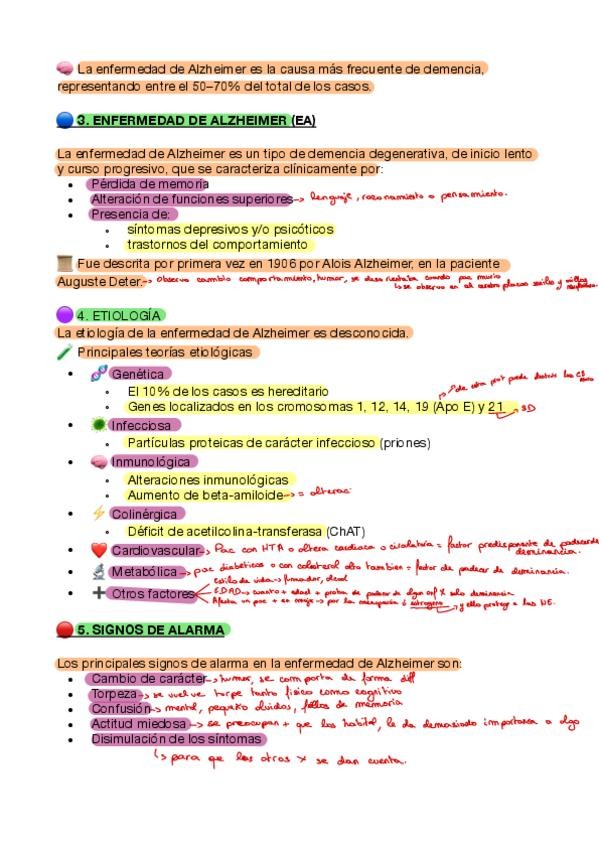 🧠 La enfermedad de Alzheimer es la causa más frecuente de demencia,
representando entre el 50–70% del total de los casos.
🔵 3. ENFERMEDAD DE ALZHEIMER (EA)
La enfermedad de Alzheimer es un tipo de demencia degenerativa, de inicio lento
y curso progresivo, que se caracteriza clínicamente por:
• Pérdida de memoria
• Alteración de funciones superiores → lenguaje, razonamiento o pensamiento.
• Presencia de:
◦ síntomas depresivos y/o psicóticos
◦ trastornos del comportamiento
📜 Fue descrita por primera vez en 1906 por Alois Alzheimer, en la paciente
Auguste Deter. → Observo cambio comportamiento, humor, se desorientaba cuando pac murio
↳ se observo en el cerebro placas seniles y
🟣 4. ETIOLOGÍA
La etiología de la enfermedad de Alzheimer es desconocida.
🧪 Principales teorías etiológicas
• 🧬 Genética
◦ El 10% de los casos es hereditario
◦ Genes localizados en los cromosomas 1, 12, 14, 19 (Apo E) y 21 → SD
prot puede
• 🦠 Infecciosa
◦ Partículas proteicas de carácter infeccioso (priones)
• 🧠 Inmunológica
◦ Alteraciones inmunológicas
◦ Aumento de beta-amiloide →
• ⚡ Colinérgica
◦ Déficit de acetilcolina-transferasa (ChAT)
• ❤️ Cardiovascular → Pac con HTA o altera cardiaca o circulatoria = factor predisponente de padecer
demencia.
• 🔬 Metabólica → pac diabeticos o con colesterol alto tambien = factor de padecer de demencia.
Estilo de vida → fumador, alcol
• ➕ Otros factores EDAD → cuanto + edad + proba de padecer de algo enf X solo demencia
Afecta un poc + en mujer → por la menopausia ó estrogeno → y ello protege las NE.
🔴 5. SIGNOS DE ALARMA
Los principales signos de alarma en la enfermedad de Alzheimer son:
• Cambio de carácter → humor, se comporta de forma diff
• Torpeza → se vuelve torpe tanto fisico como cognitivo
• Confusión → mental, pequeño olvidos, fallos de memoria
• Actitud miedosa → se preocupan + que los habitol, le da demasiado importancia a algo
• Disimulación de los síntomas
↳ para que los otros X se dan cuenta.